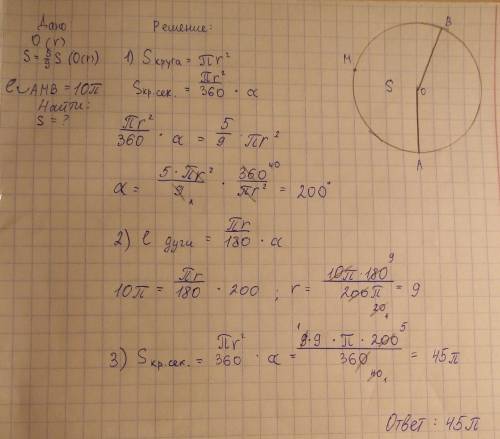 Дано
O (r)
S = 5/9 S (O(r))
ℓ◡AMB = 10π
Найти:
S = ?
Решение:
1) S круга = πr²
S кр.сек. = πr²/360 · α
πr²/360 · α = 5/9 · πr²
α = 5·πr²/9 · 360/πr² = 200°
40
1
2) ℓ дуги = πr/180 · α
10π = πr/180 · 200 ; r = 10π·180/200π = 9
9
20 1
3) S кр.сек. = πr²/360 · α = 9·9·π·200/360 = 45π
1 5
40 1
Ответ: 45π
B
M
S
O
A